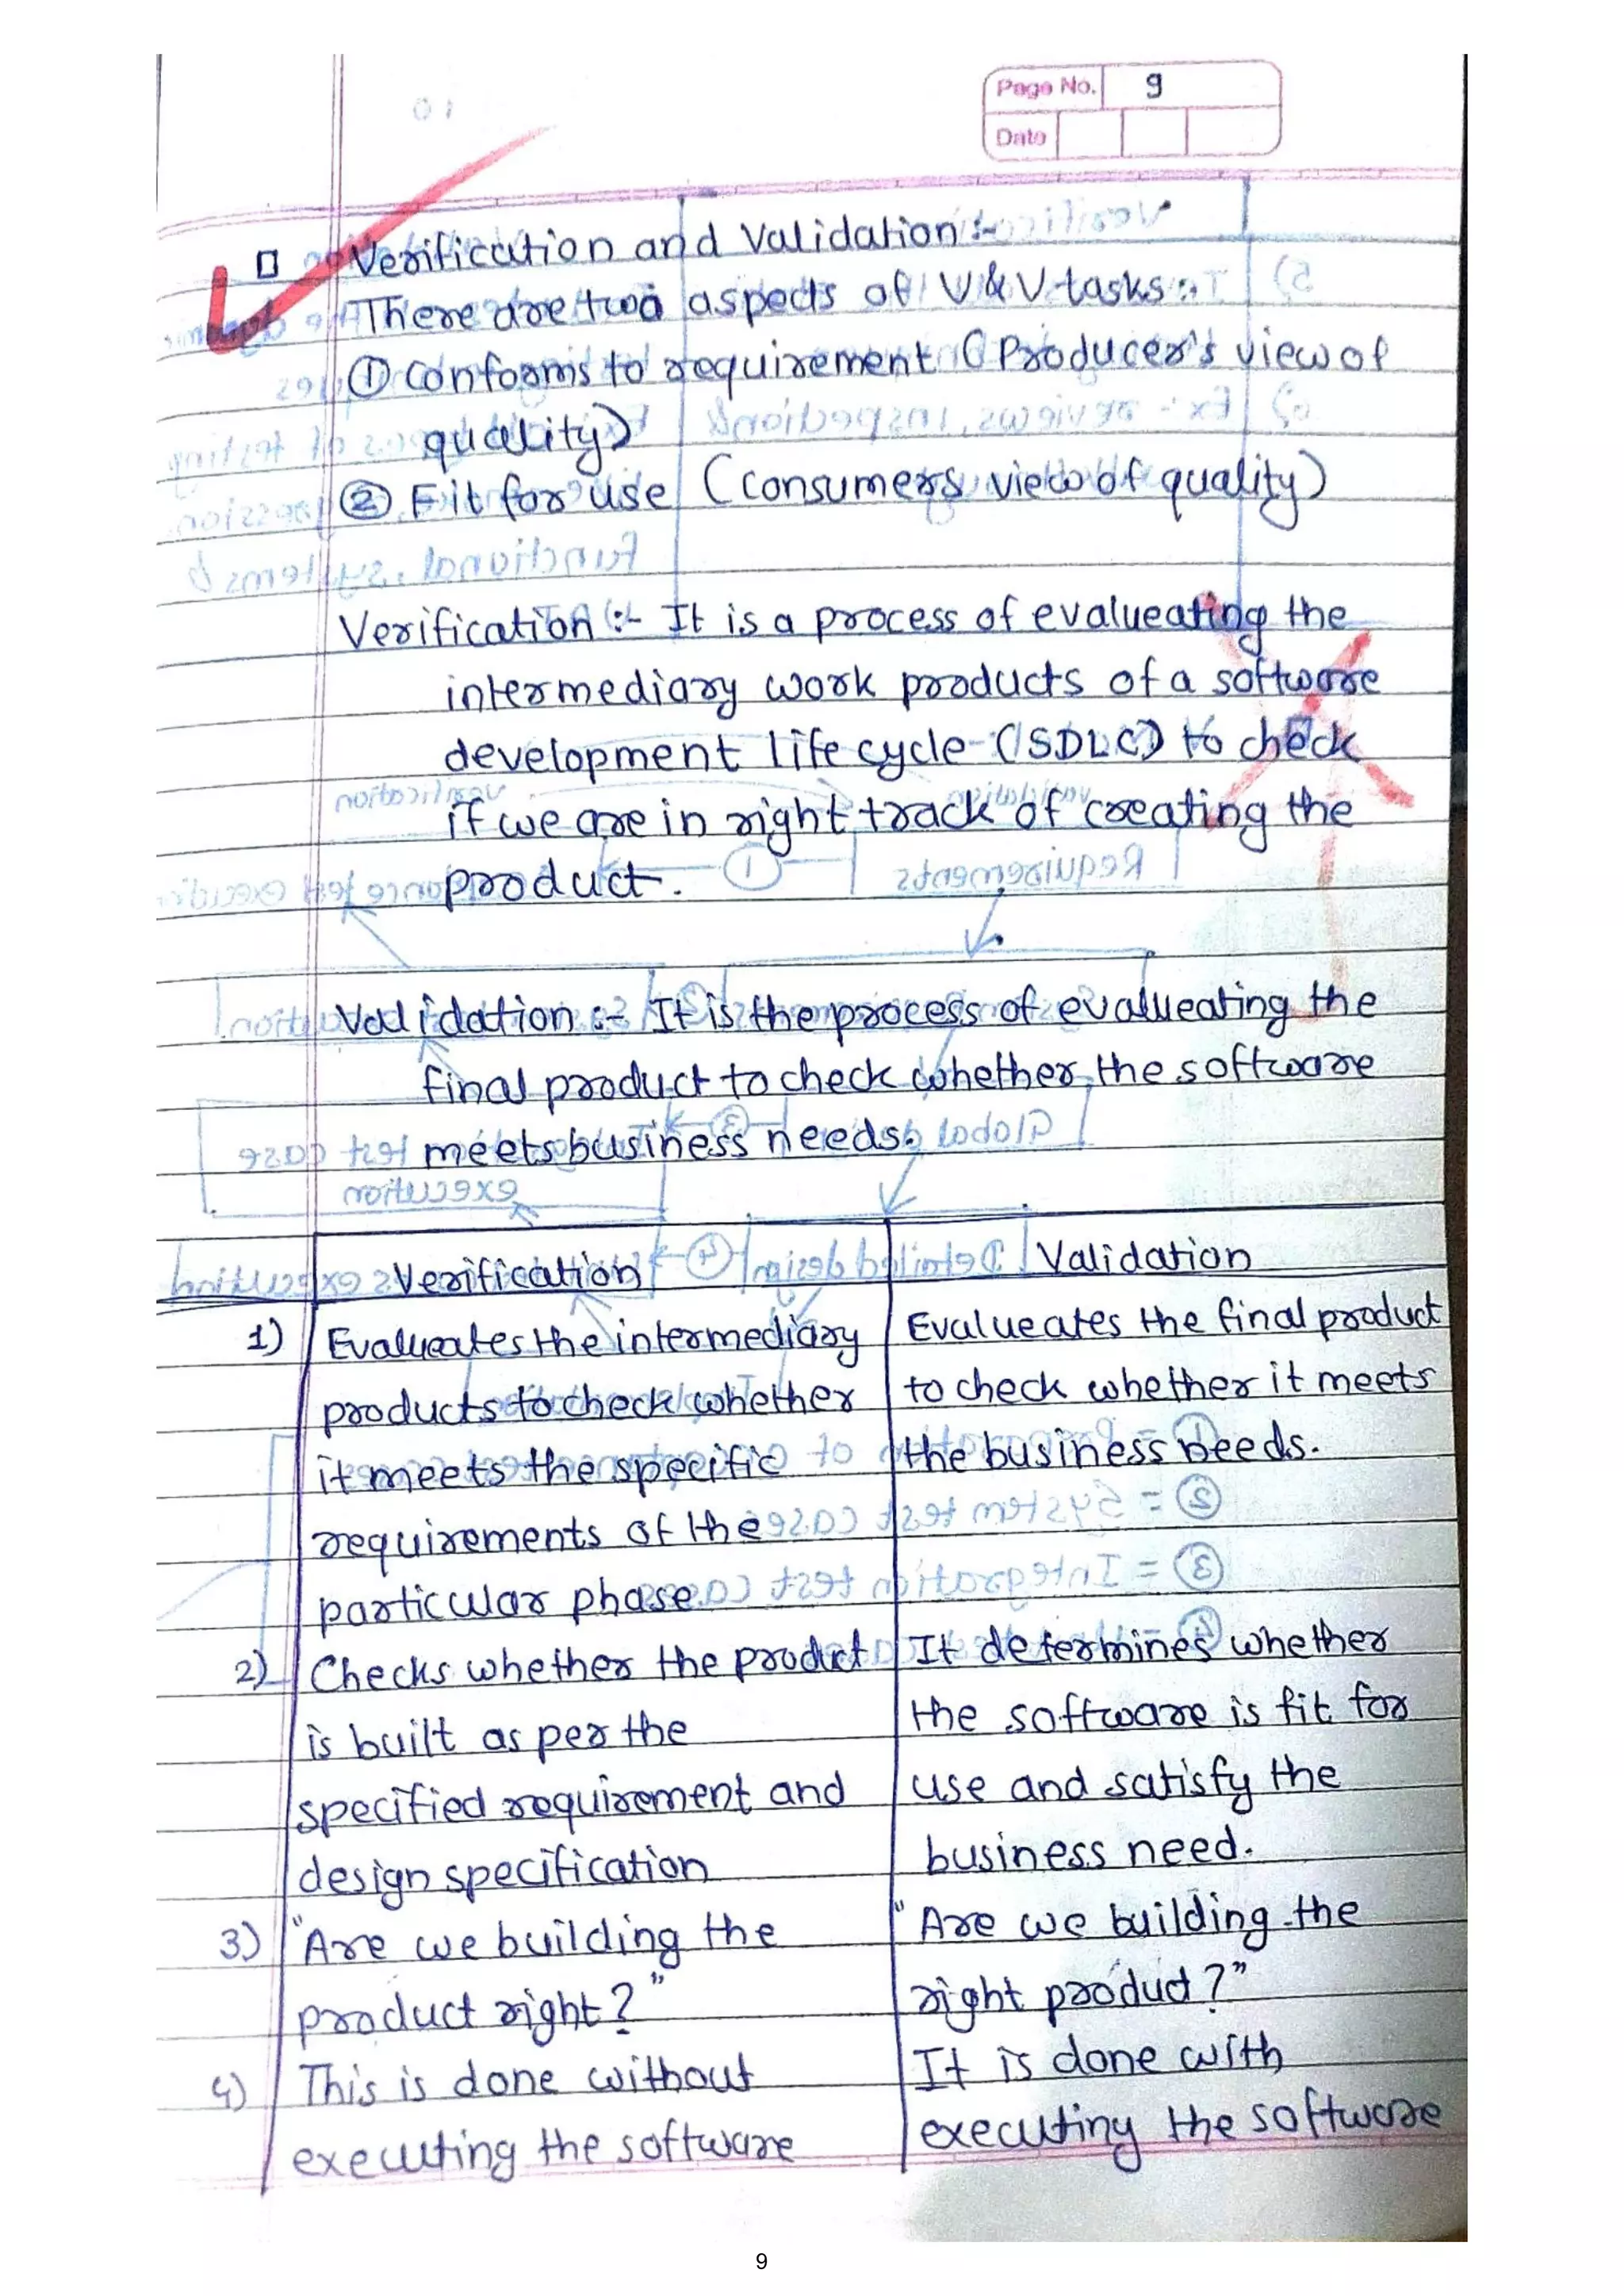 Page No. 9
Date
Verification and Validation :-
There are two aspects of V & V tasks :-
① Conforms to requirement (Producer's view of
quality)
② Fit for use (Consumers view of quality)
Verification :- It is a process of evalueating the
intermediary work products of a software
development life cycle (SDLC) to check
if we are in right track of creating the
product.
Validation :- It is the process of evalueating the
final product to check whether the software
meets business needs.
Verification Validation
1) Evalueates the intermediary Evalueates the final product
products to check whether to check whether it meets
it meets the specific the business needs.
requirements of the
particular phase.
2) Checks whether the product It determines whether
is built as per the the software is fit for
specified requirement and use and satisfy the
design specification business need.
3) "Are we building the "Are we building the
product right?" right product?"
4) This is done without It is done with
executing the software executing the software
9